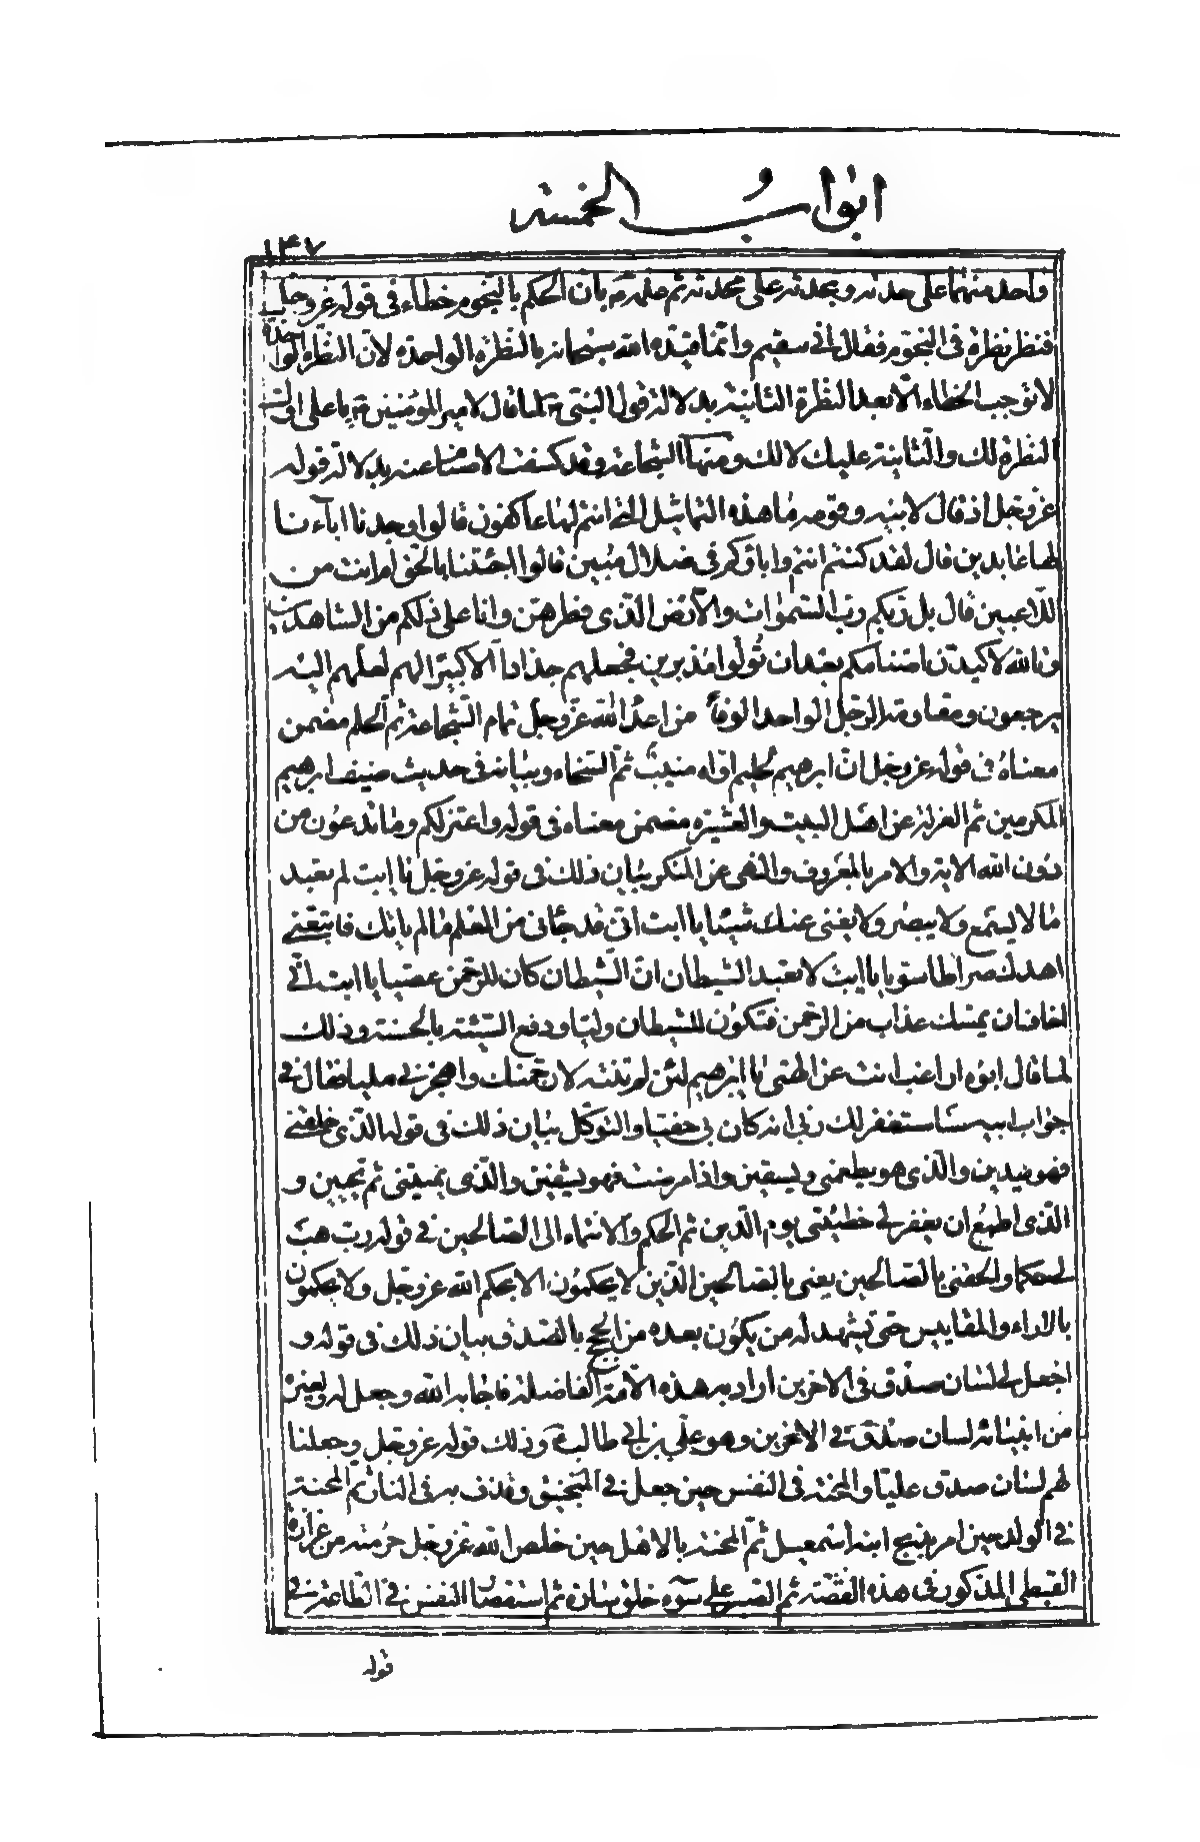 ابواب الخمسة
١٤٧
واحد منهما على حدثه وبحدثه على محدثه ثم علمه ع بان الحكم بالنجوم خطاء فى قوله عز وجل
فنظر نظرة فى النجوم فقال انى سقيم وانما قيده الله سبحانه بالنظرة الواحدة لان النظرة الواحدة
لا توجب الخطاء الا بعد النظرة الثانية بدلالة قول النبى ص لما قال لامير المؤمنين ع يا على اول
النظرة لك والثانية عليك لا لك ومنها الشجاعة وقد كسفت الاصنام عنه بدلالة قوله
عز وجل اذ قال لابيه وقومه ما هذه التماثيل التى انتم لها عاكفون قالوا وجدنا اباءنا
لها عابدين قال لقد كنتم انتم واباؤكم فى ضلال مبين قالوا اجئتنا بالحق ام انت من
اللاعبين قال بل ربكم رب السموات والارض الذى فطرهن وانا على ذلكم من الشاهدين
وتالله لاكيدن اصنامكم بعد ان تولوا مدبرين فجعلهم جذاذا الا كبيرا لهم لعلهم اليه
يرجعون ومقاومة الرجل الواحد الوفا من اعداء الله عز وجل تمام الشجاعة ثم الحلم مضمن
معناه فى قوله عز وجل ان ابرهيم لحليم اواه منيب ثم السخاء وبيانه فى حديث ضيف ابرهيم
المكرمين ثم العزلة عن اهل البيت والعشيرة مضمن معناه فى قوله واعتزلكم وما تدعون من
دون الله الاية والامر بالمعروف والنهى عن المنكر بيان ذلك فى قوله عز وجل يا ابت لم تعبد
ما لا يسمع ولا يبصر ولا يغنى عنك شيئا يا ابت انى قد جائنى من العلم ما لم ياتك فاتبعنى
اهدك صراطا سويا يا ابت لا تعبد الشيطان ان الشيطان كان للرحمن عصيا يا ابت انى
اخاف ان يمسك عذاب من الرحمن فتكون للشيطان وليا ودفع السيئة بالحسنة وذلك
لما قال ابوه اراغب انت عن الهتى يا ابرهيم لئن لم تنته لارجمنك واهجرنى مليا فقال فى
جواب ابيه ساستغفر لك ربى انه كان بى حفيا والتوكل بيان ذلك فى قوله الذى خلقنى
فهو يهدين والذى هو يطعمنى ويسقين واذا مرضت فهو يشفين والذى يميتنى ثم يحيين و
الذى اطمع ان يغفر لى خطيئتى يوم الدين ثم الحكم والانتماء الى الصالحين فى قوله رب هب
لى حكما والحقنى بالصالحين يعنى بالصالحين الذين لا يحكمون الا بحكم الله عز وجل ولا يحكمون
بالاراء والمقاييس حتى تشهد له من يكون بعده من الحجج بالصدق بيان ذلك فى قوله و
اجعل لى لسان صدق فى الاخرين اراد به هذه الامة الفاضلة فاجابه الله وجعل له ولغيره
من انبيائه لسان صدق فى الاخرين وهو على بن ابى طالب ع وذلك قوله عز وجل وجعلنا
لهم لسان صدق عليا والمحنة فى النفس حين جعل فى المنجنيق وقذف به فى النار ثم المحنة
فى الولد حين امر بذبح ابنه اسمعيل ثم المحنة بالاهل حين خلص الله عز وجل حرمته من عرارة
القبطى المذكور فى هذه القصة ثم الصبر على سوء خلق سارة ثم استقصا النفس فى الطاعة فى
قوله